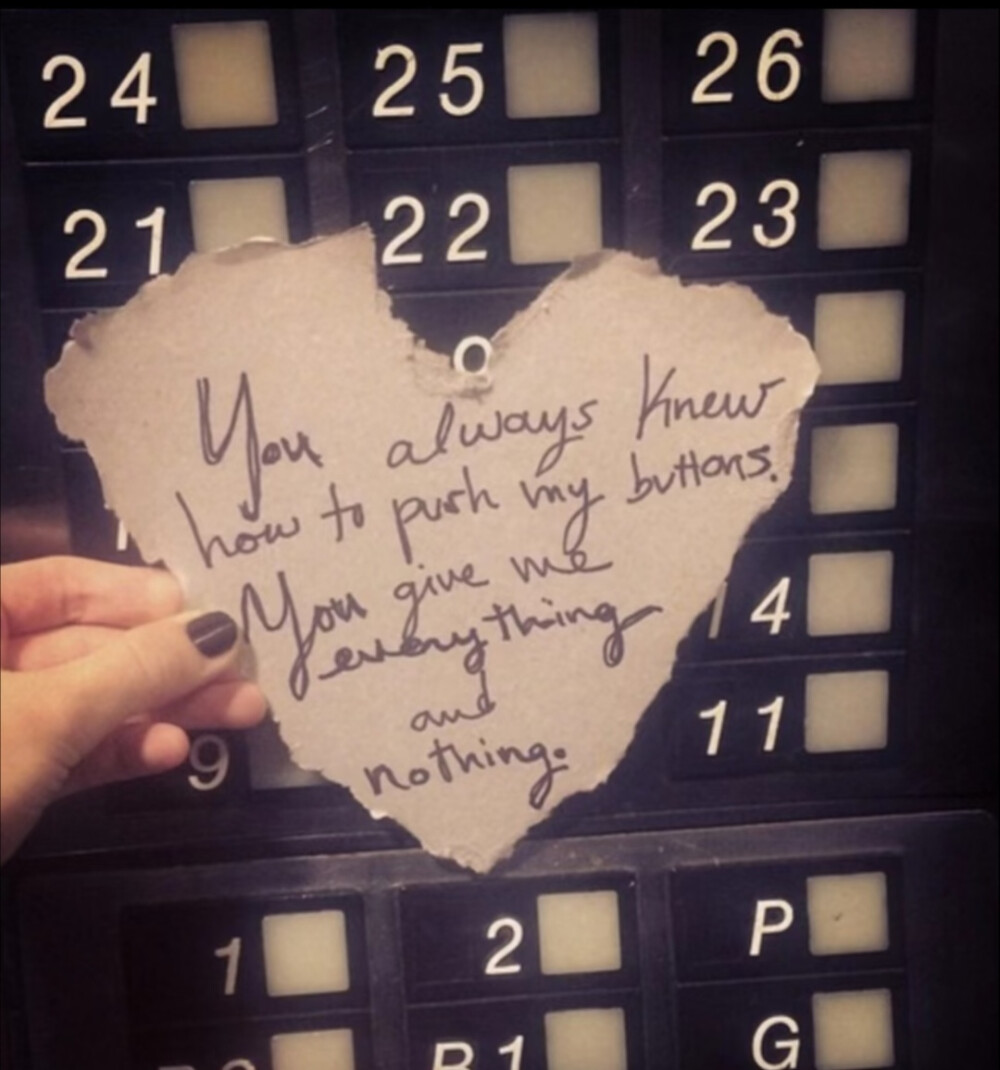 24 25 26
21 22 23
You always knew
how to push my buttons.
You give me
everything
and
nothing.
4
11
9
1 2 P
B1 G